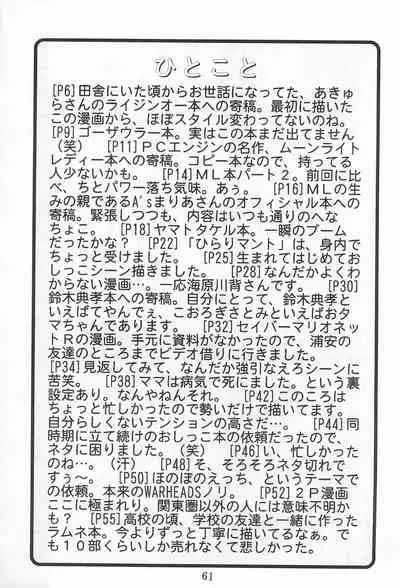 ひとこと
[P6]田舎にいた頃からお世話になってた、あきゅ
らさんのライジンオー本への寄稿。最初に描いた
この漫画から、ほぼスタイル変わってないのね。
[P9]ゴーザウラー本。実はこの本まだ出てません
(笑) [P11]PCエンジンの名作、ムーンライト
レディー本への寄稿。コピー本なので、持ってる
人少ないかも。 [P14]ML本パート2。前回に比
べ、ちとパワー落ち気味。あぅ。 [P16]MLの生
みの親であるA'sまりあさんのオフィシャル本への
寄稿。緊張しつつも、内容はいつも通りのへな
ちょこ。 [P18]ヤマトタケル本。一瞬のブーム
だったかな? [P22]「ひらりマント」は、身内で
ちょっと受けました。 [P25]生まれてはじめてお
しっこシーン描きました。 [P28]なんだかよくわ
からない漫画…。一応海原川背さんです。 [P30]
鈴木典孝本への寄稿。自分にとって、鈴木典孝と
いえばてやんでぇ、こおろぎさとみといえばおタ
マちゃんであります。 [P32]セイバーマリオネッ
トRの漫画。手元に資料がなかったので、浦安の
友達のところまでビデオ借りに行きました。
[P34]見返してみて、なんだか強引なえろシーンに
苦笑。 [P38]ママは病気で死にました。という裏
設定あり。なんやねんそれ。 [P42]このころは
ちょっと忙しかったので勢いだけで描いてます。
自分らしくないテンションの高さだ…。 [P44]同
時期に立て続けのおしっこ本の依頼だったので、
ネタに困りました。(笑) [P46]い、忙しかった
のね…。(汗) [P48]そ、そろそろネタ切れで
すぅ～。 [P50]ほのぼのえっち、というテーマで
の依頼。本来のWARHEADSノリ。 [P52]2P漫画
ここに極まれり。関東圏以外の人には意味不明か
も? [P55]高校の頃、学校の友達と一緒に作った
ラムネ本。今よりずっと丁寧に描いてるなぁ。で
も10部くらいしか売れなくて悲しかった。
61